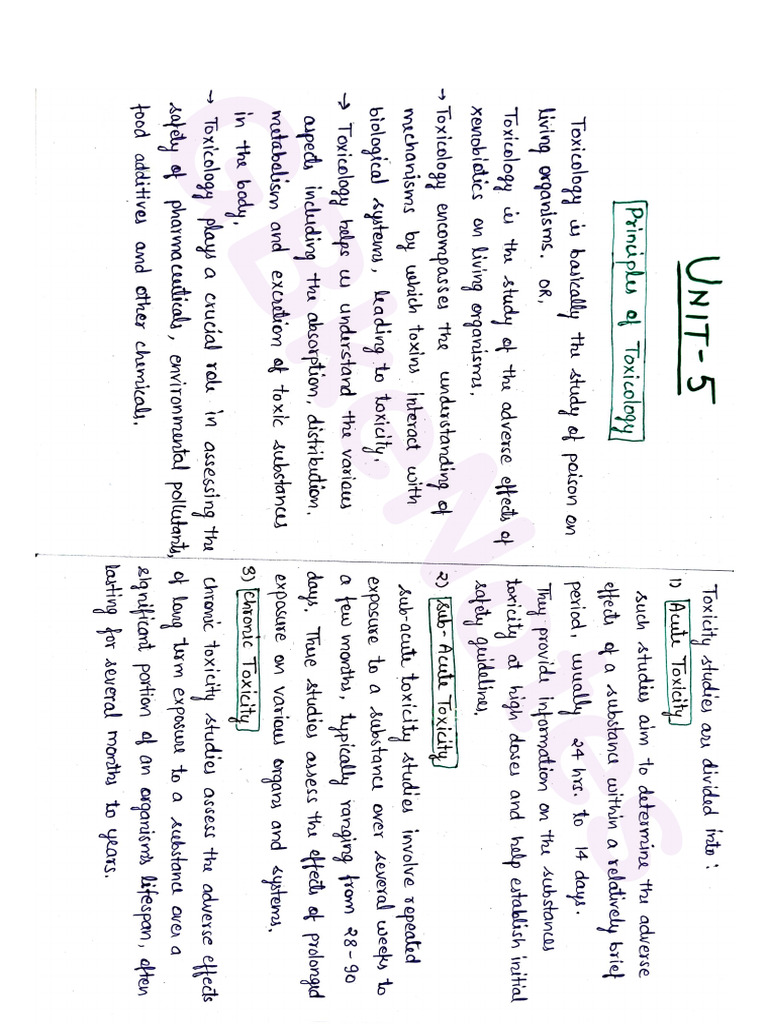 UNIT-5
Principles of Toxicology
Toxicology is basically the study of poison on
living organisms. OR,
Toxicology is the study of the adverse effects of
xenobiotics on living organisms.
→ Toxicology encompasses the understanding of
mechanisms by which toxins interact with
biological systems, leading to toxicity.
→ Toxicology helps us understand the various
aspects including the absorption, distribution,
metabolism and excretion of toxic substances
in the body.
→ Toxicology plays a crucial role in assessing the
safety of pharmaceuticals, environmental pollutants,
food additives and other chemicals.
Toxicity studies are divided into:
1) Acute Toxicity
such studies aim to determine the adverse
effects of a substance within a relatively brief
period, usually 24 hrs. to 14 days.
They provide information on the substances
toxicity at high doses and help establish initial
safety guidelines.
2) Sub-Acute Toxicity
sub-acute toxicity studies involve repeated
exposure to a substance over several weeks to
a few months, typically ranging from 28-90
days. These studies assess the effects of prolonged
exposure on various organs and systems.
3) Chronic Toxicity
chronic toxicity studies assess the adverse effects
of long term exposure to a substance over a
significant portion of an organisms lifespan, often
lasting for several months to years.